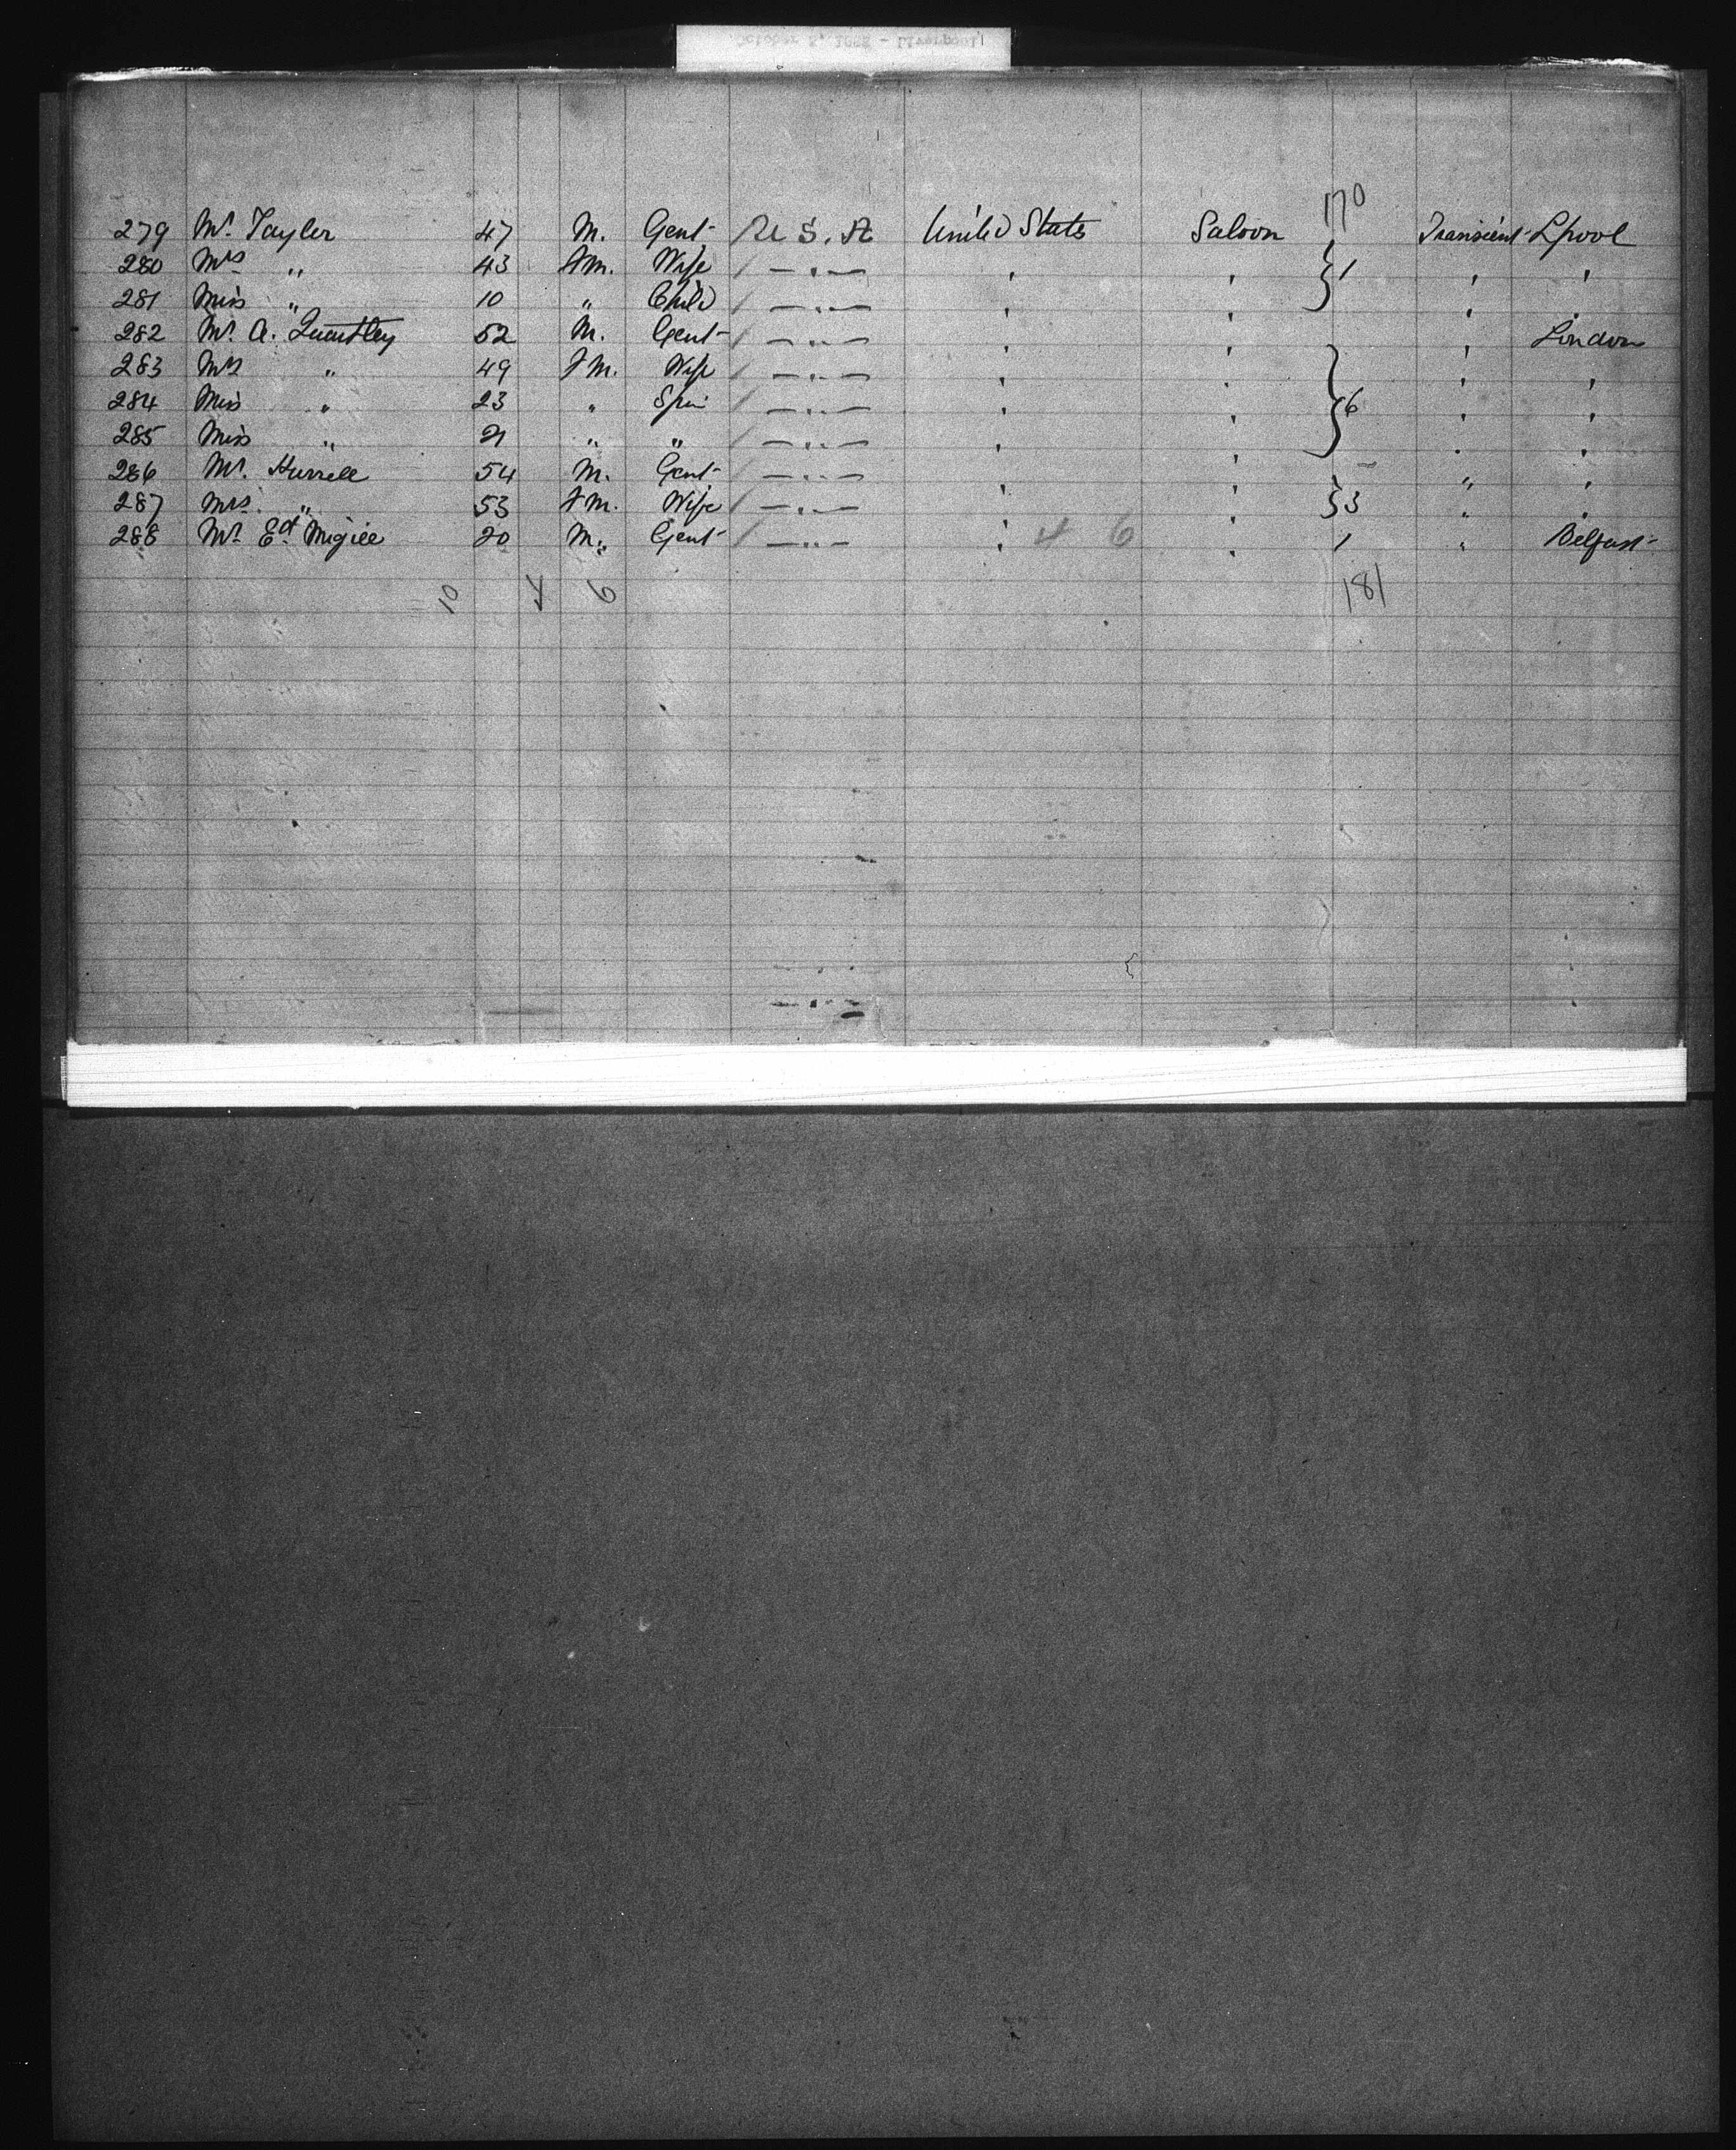 170
279 Mr. Tayler 47 M. Gent U.S.A United States Saloon Transient Lpool
280 Mrs " 43 Fm. Wife / — " — " " } 1 " "
281 Miss " 10 " Child / — " — " " "
282 Mr. A. 52 M. Gent / — " — " " " London
283 Mrs " 49 Fm. Wife / — " — " " " "
284 Miss " 23 " Spin / — " — " " } 6 " "
285 Miss " 21 " " / — " — " " " "
286 Mr. Hurrell 54 M. Gent / — " — " " " "
287 Mrs. " 53 Fm. Wife / — " — " " } 3 " "
288 Mr. Ed. Migill 20 M. Gent / — " — " 4 6 " 1 " Belfast
10 4 6 181